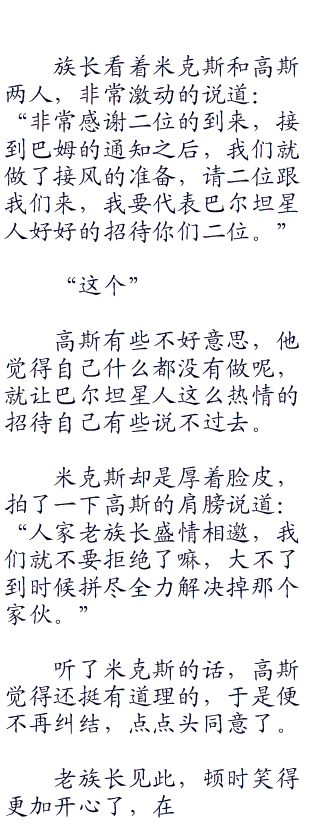 族长看着米克斯和高斯
两人，非常激动的说道：
“非常感谢二位的到来，接
到巴姆的通知之后，我们就
做了接风的准备，请二位跟
我们来，我要代表巴尔坦星
人好好的招待你们二位。”
“这个”
高斯有些不好意思，他
觉得自己什么都没有做呢，
就让巴尔坦星人这么热情的
招待自己有些说不过去。
米克斯却是厚着脸皮，
拍了一下高斯的肩膀说道：
“人家老族长盛情相邀，我
们就不要拒绝了嘛，大不了
到时候拼尽全力解决掉那个
家伙。”
听了米克斯的话，高斯
觉得还挺有道理的，于是便
不再纠结，点点头同意了。
老族长见此，顿时笑得
更加开心了，在